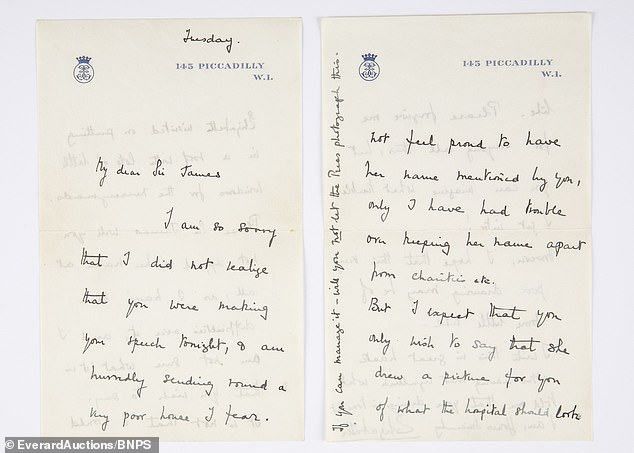 Tuesday.
145 PICCADILLY
W.1.
My dear Sir James
I am so sorry
that I did not realize
that you were making
you speech tonight, & am
hurriedly sending round a
very poor house I fear.
145 PICCADILLY
W.1.
not feel proud to have
her name mentioned by you,
only I have had trouble
over keeping her name apart
from charities etc.
But I expect that you
only wish to say that she
drew a picture for you
of what the hospital should look
If you can manage it - will you not let the Press photograph this.
©EverardAuctions/BNPS